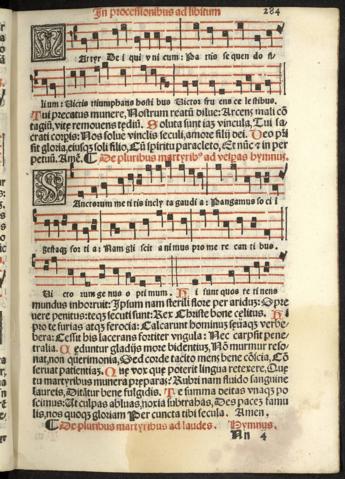 In processionibus ad libitum 284
Martyr De i qui v ni cum: Pa tris se quen do fi/
lium: Victis triumphans hosti bus Victor fru ens ce lestibus.
Tui precatus munere, Nostrum reatū dilue: Arcens mali cō
tagiū, vite remouens tediū. Soluta sunt iaz vincula, Tui sa/
crati corpis: Nos solue vinclis seculi, amore filij dei. Deo pri
sit gloria, eiusqz soli filio, Cū spiritu paracleto, Et nūc z in per
petuū. Amē. De pluribus martyribꝰ ad vesꝑas hymnus.
Sanctorum me ri tis incly ta gaudi a: Pangamus so ci i
gestaqz for ti a: Nam gli scit a nimus pro me re can ti bus.
Vi cto rum ge nus o pti mum. Hi sunt quos re ti nens
mundus inhorruit: Ipsum nam sterili flore per aridum: Spre
uere penitus: teqz secuti sunt: Rex Christe bone celitus. Hi
pro te furias atqz ferocia: Calcarunt hominuz seuaqz verbe/
bera: Cessit his lacerans fortiter vngula: Nec carpsit pene
tralia. Ceduntur gladijs more bidentiuz, Nō murmur resō/
nat, non querimonia, Sed corde tacito mens bene cōscia, Cō
seruat patientiaz. Que vox que poterit lingua retexere, Que
tu martyribus munera preparas? Rubri nam fluido sanguine
laureis, Ditātur bene fulgidis. Te summa deitas vnaqz po
scimus: Ut culpas abluas, noxia subtrahas, Des pacem famu
lis, nos quoqz gloriam Per cuncta tibi secula. Amen.
De pluribus martyribus ad laudes. Hymnus.
Nn 4